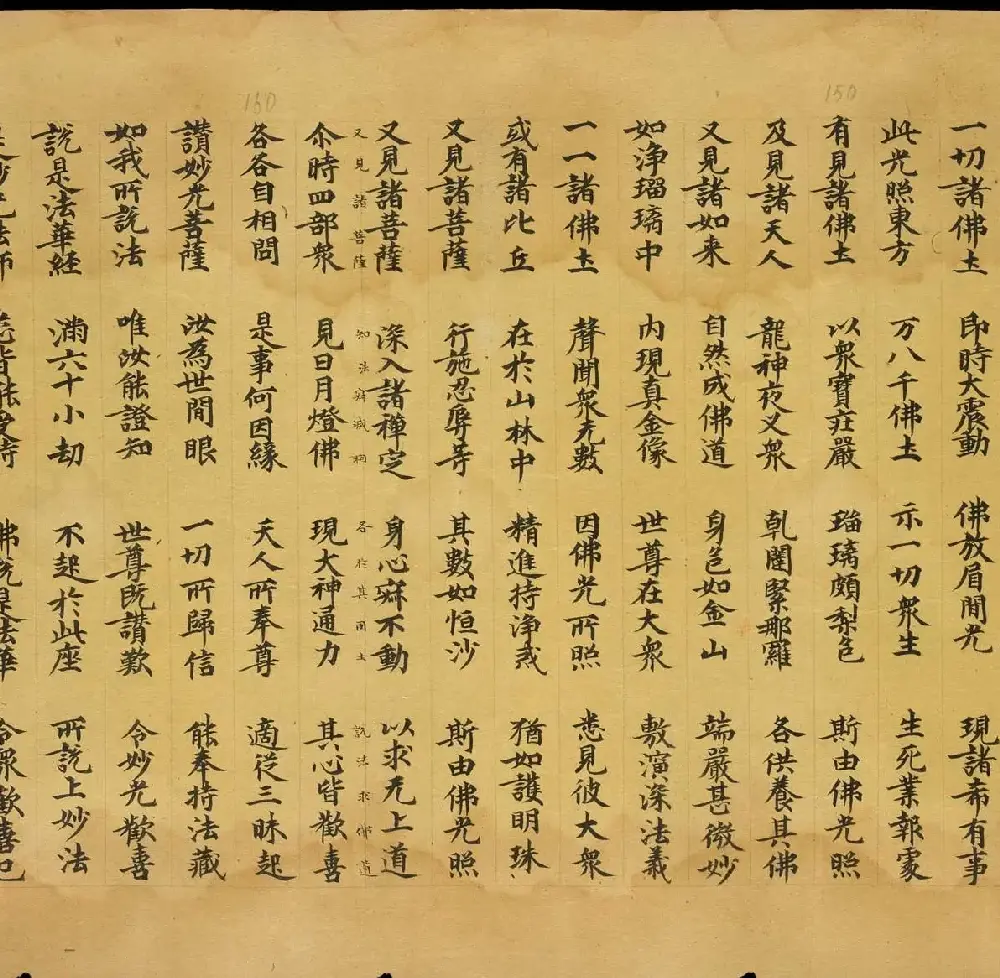 一切諸佛土 即時大震動 佛放眉間光 現諸希有事
此光照東方 万八千佛土 示一切衆生 生死業報家
有見諸佛土 以衆寶莊嚴 瑠璃頗梨色 斯由佛光照
及見諸天人 龍神夜叉衆 乹闥緊那羅 各供養其佛
又見諸如来 自然成佛道 身色如金山 端嚴甚微妙
如淨瑠璃中 内現真金像 世尊在大衆 敷演深法義
一一諸佛土 聲聞衆无數 因佛光所照 悉見彼大衆
或有諸比丘 在於山林中 精進持淨戒 猶如護明珠
又見諸菩薩 行施忍辱等 其數如恒沙 斯由佛光照
又見諸菩薩 深入諸禪定 身心寂不動 以求无上道
又見諸菩薩 知法寂滅相 各於其國土 説法求佛道
尒時四部衆 見日月燈佛 現大神通力 其心皆歡喜
各各自相問 是事何因緣 天人所奉尊 適従三昧起
讚妙光菩薩 汝為世間眼 一切所歸信 能奉持法藏
如我所説法 唯汝能證知 世尊既讚歎 令妙光歡喜
説是法華経 滿六十小劫 不起於此座 所説上妙法
是妙光法師 悉皆能受持 佛説是法華 令衆歡喜已
150
160